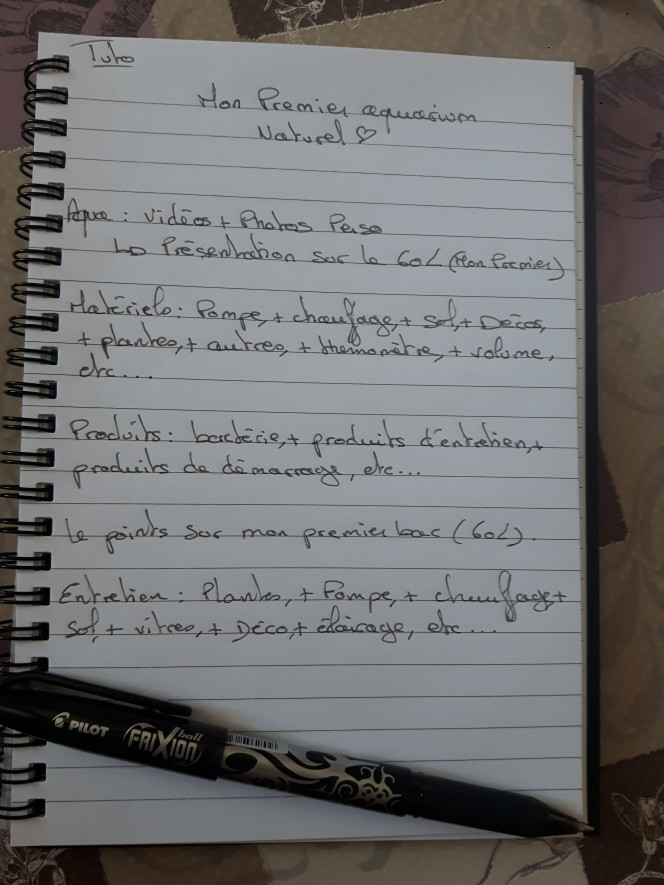 Tuto
Mon Premier aquarium
Naturel ♡
Aqua : vidéos + Photos Perso
↳ Présentation sur le 60L (Mon Premier)
Matériels : Pompe, + chauffage, + Sol, + Décos,
+ plantes, + autres, + themomètre, + volume,
etc...
Produits : bactérie, + produits d'entretien, +
produits de démarrage, etc...
Le points sur mon premier bac (60L).
Entretien : Plantes, + Pompe, + chauffage, +
Sol, + vitres, + Déco, + éclairage, etc...
PILOT FRIXION ball